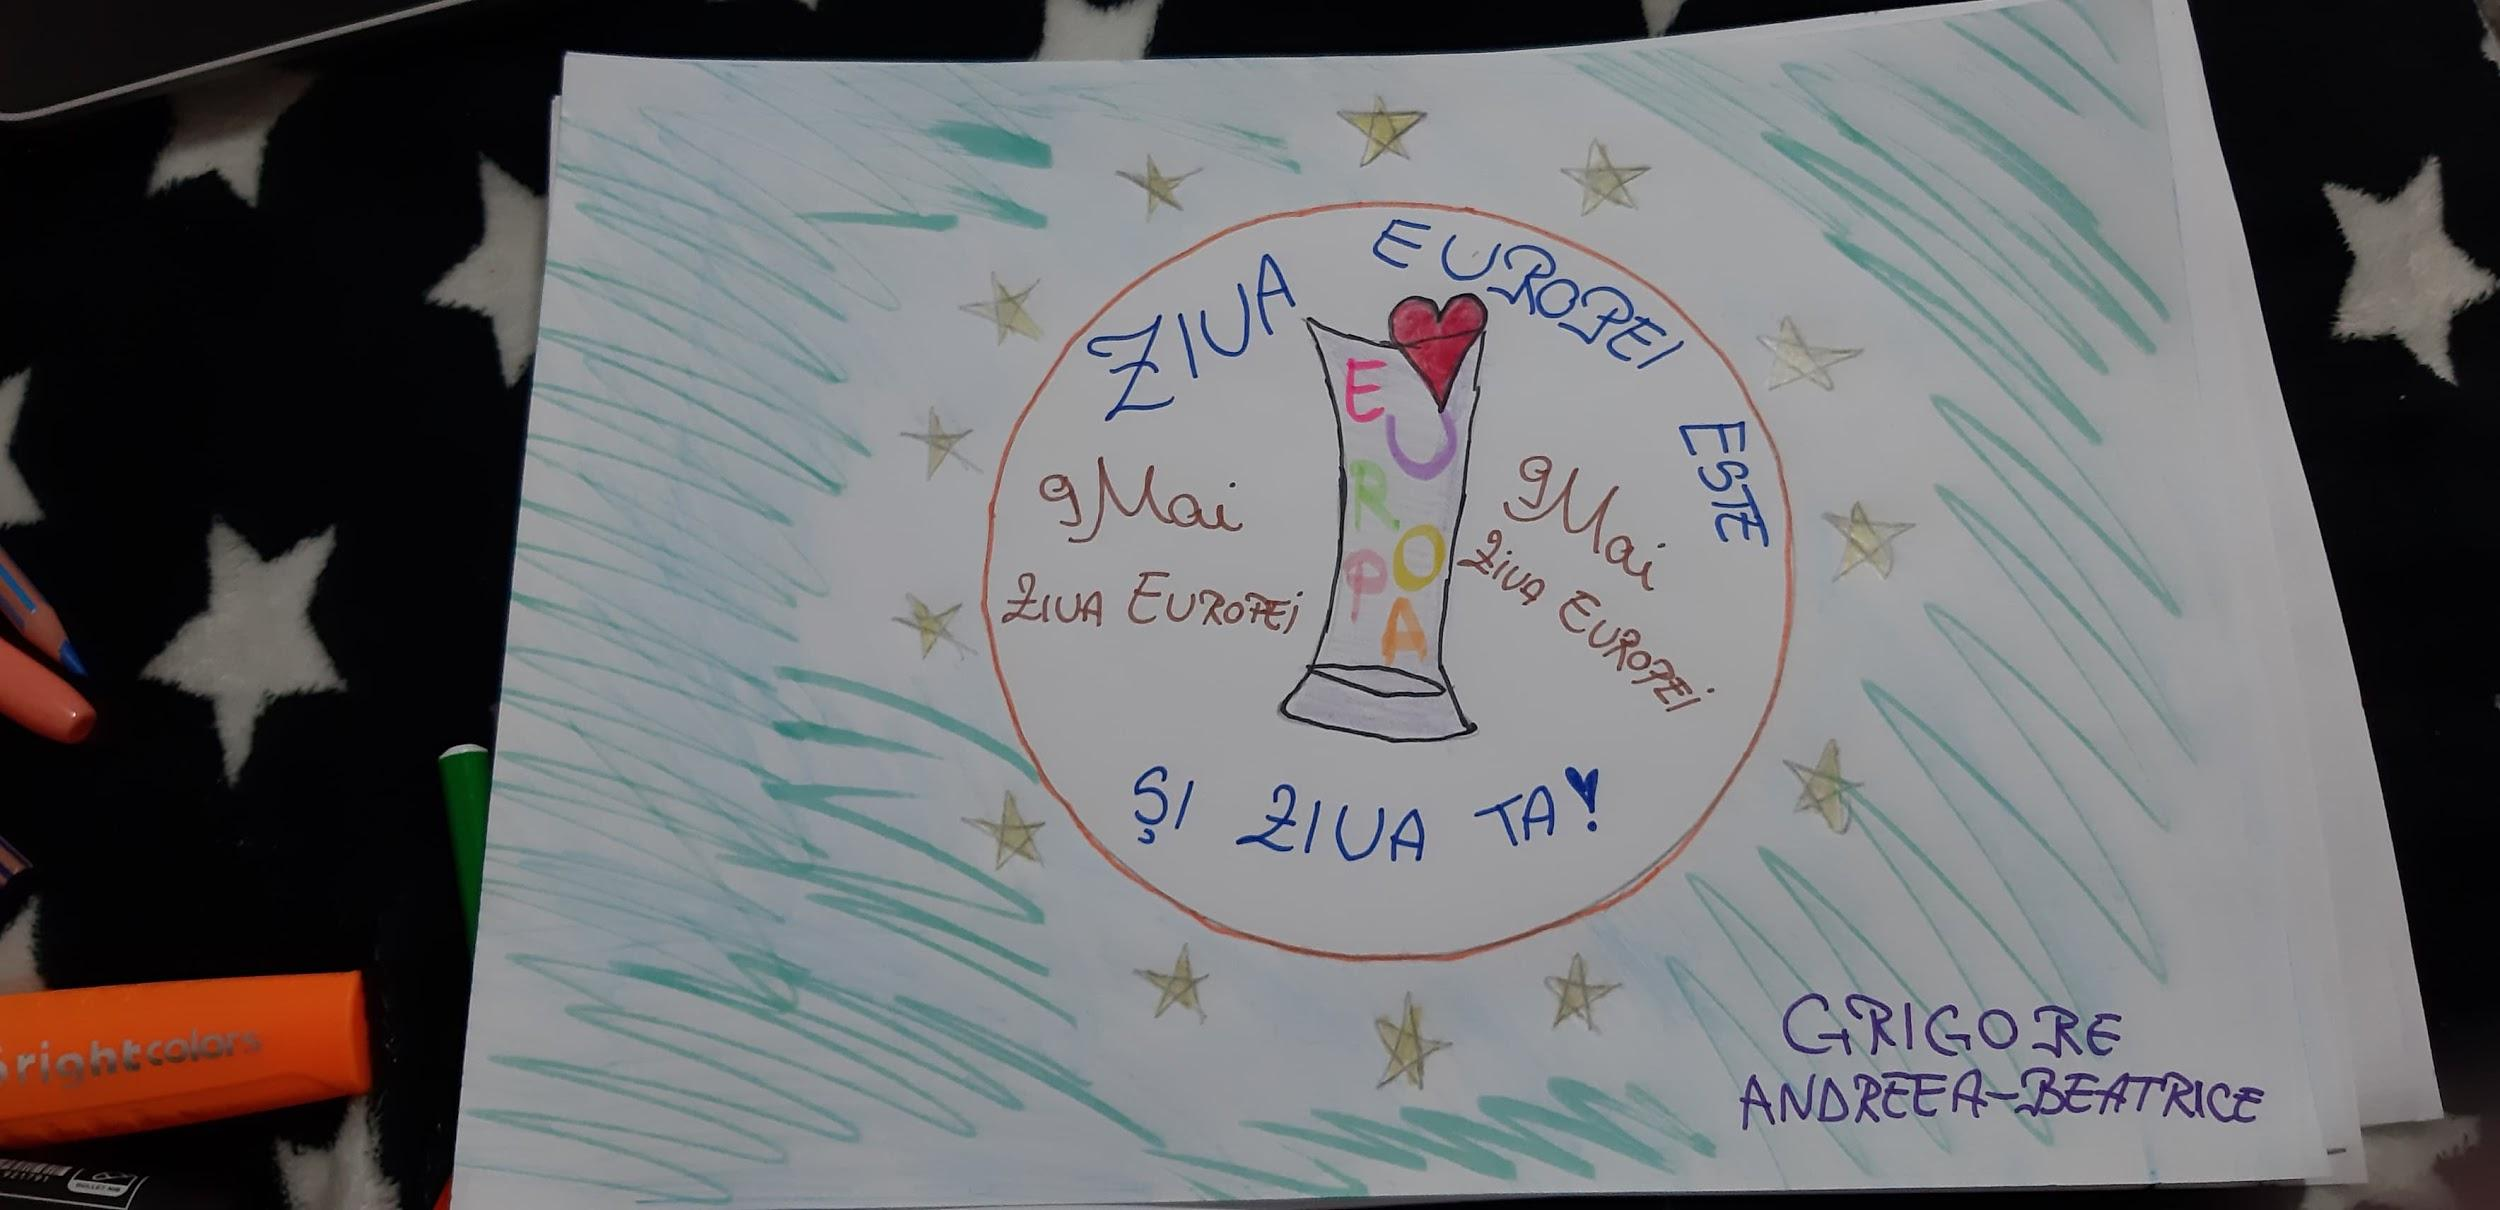 ZIUA EUROPEI ESTE
EUROPA
9 Mai
ZIUA EUROPEI
9 Mai
ZIUA EUROPEI
ȘI ZIUA TA!
GRIGORE
ANDREEA-BEATRICE
rightcolors